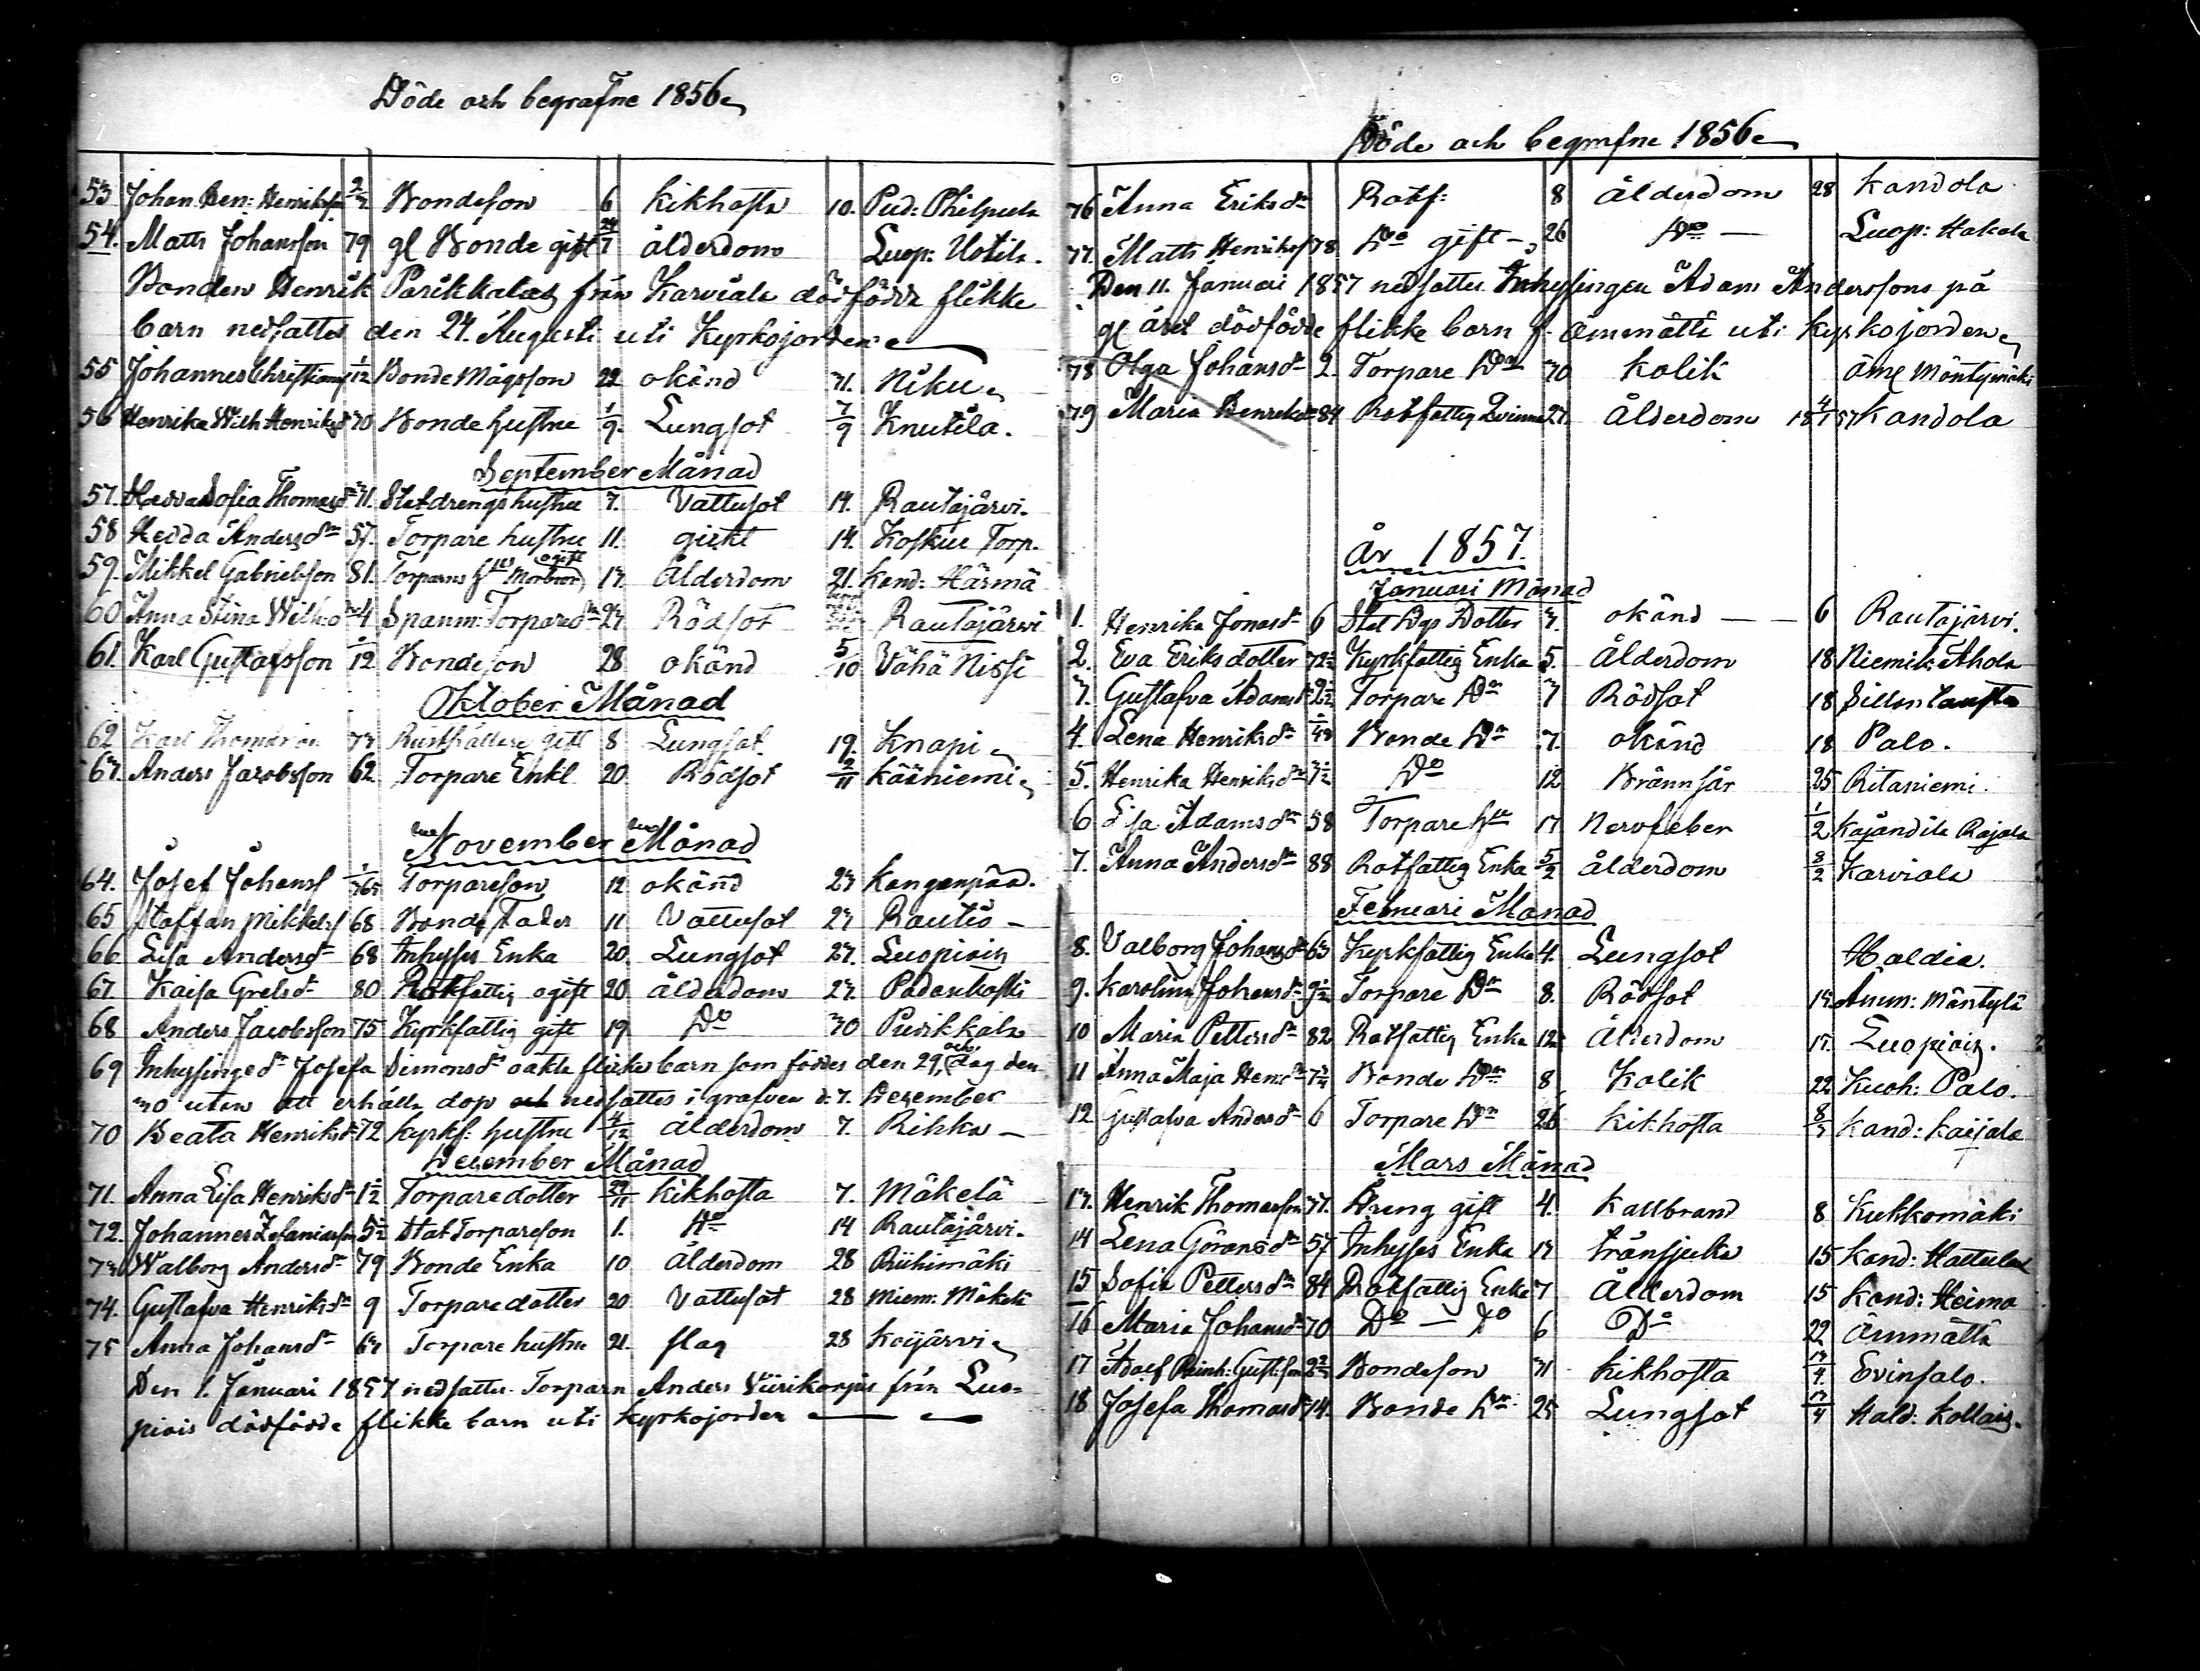 Döde och begrafne 1856
53 Johan Ben: Henriksson Bondeson 6 kikhosta 10. Pud: Philpula
54. Matts Johansson 79 gl Bonde gift 24/7 ålderdom Luop: Uotila.
Bonden Henrik Parikkalas från Karviala dödfödde flikke
barn nedsattes den 24. Augusti uti Kyrkojorden
55 Johannes Christians 1/12 Bonde Mågsson 22 okänd 31. Niku
56 Henrika Wilh Henriksd 30 Bonde hustru 1/9. Lungsot 7/9 Knutila.
September Månad
57. Hedda Sofia Thomasdr 31. Statdrengs hustru 7. Vattusot 14. Rautajärvi.
58 Hedda Andersdr 57. Torpare hustru 11. gickt 14. Koskue Torp.
59. Mikkel Gabrielsson 81. Torparns Morbror ogift 13. Ålderdom 21. Kand: Härmä
60 Anna Stina Wilh:dr 4 Spanm: Torparedr 23. Rödsot Rautajärvi
61. Karl Gustafsson 1/12 Bondeson 28 okänd 5/10 Vähä Nissi
Oktober Månad
62 Karl Thomasson 33 Rusthållare gift 8 Lungsot. 19. Knapi
63. Anders Jacobsson 62. Torpare Enkl 20. Rödsot 2/11 Kääniemi
November Månad
64. Josef Johanss Torpareson 12 okänd 23 Kangenpää.
65 Staffan Mikkelss 68 Bonde Fader 11 Vattusot 23 Rautio
66 Lisa Andersdr 68 Inhyses Enka 20. Lungsot 23. Luopiois
67. Kaisa Gretsdr 80 Rotfattig ogift 20 ålderdom 23. Padankoski
68 Anders Jacobsson 75 Kyrkfattig gift 19. Do 30 Puirikkala
69 Inhysingedr Josefa Simonsdrs oäkta flicke barn som föddes den 29, och dog den
30 utan att erhålla dop nedsattes i grafven d: 7. December
70 Beata Henriksdr 72 Kyrkf: hustru 4/12 Ålderdom 7. Rihko
December Månad
71. Anna Lisa Henriksdr 1½ Torparedotter 29/11 Kikhosta 7. Mäkelä
72. Johannes Zefaniasson 5½ Stat Torpareson 1. Do 14 Rautajärvi.
73 Walborg Andersdr 79 Bonde Enka 10 Ålderdom 28 Riihimäki
74. Gustafva Henriksdr 9 Torparedotter 20 Vattusot 28 Niem: Mäkelä
75 Anna Johansdr 63 Torpare hustru 21. slag 28 Koijärvi
Den 1. Januari 1857 nedsattes Torparn Anders Viirikorpis från Luo=
piois dödfödde flikke barn uti kyrkojorden
Döde och begrafne 1856
76 Anna Eriksdr Rotf: 8 Ålderdom 28 Kandola
77. Matts Henriksson 78 Do gift 26 Do Luop: Hakala
Den 11. Januari 1857 nedsattes Inhysingen Adam Anderssons på
gl året dödfödde flikke barn f. Ämmättä uti kyrkojorden
78 Olga Johansdr 2. Torpare Dr 30 Kolik Äm Mäntymäki
79 Maria Henriksdr 84 Rotfattig Qvinna 27. Ålderdom 18 4/1 57 Kandola
År 1857.
Januari Månad
1. Henrika Jonasdr 6 Stat Dgs Dotter 3. okänd 6 Rautajärvi.
2. Eva Eriksdotter 72½ Kyrkfattig Enka 5. Ålderdom 18 Niemik: Ahola
3. Gustafva Adamsdr 2½ Torpare Dr 7 Rödsot 18
4. Lena Henriksdr Bonde Dr 7. okänd 18 Palo.
5. Henrika Henriksdr 3½ Do 12 Brännsår 25 Ritaniemi.
6 Lisa Adamsdr 58 Torpare hu 17 Nervfeber 1/2 Kajandila Rajala
7. Anna Andersdr 88 Rotfattig Enka 5/2 ålderdom 8/2 Karviala
Februari Månad
8. Valborg Johansdr 63 Kyrkfattig Enka 4. Lungsot Haldia.
9. Karolina Johansdr 9½ Torpare Dr 8. Rödsot 13 Ämm: Mäntylä
10 Maria Pettersdr 82 Rotfattig Enka 12 Ålderdom 17. Luopiois.
11 Anna Maja Henrdr Bonde Dr 8 Kolik 22 Kuoh: Palo.
12 Gustafva Andersdr 6 Torpare Dr 26 Kikhosta 8/3 Kand: Kaijala
Mars Månad
13. Henrik Thomasson 77. Dreng gift 4. Kallbrand 8 Kukkomäki
14 Lena Göransdr 57 Inhyses Enka 13 tränsjuka 15 Kand: Hattula
15 Sofia Pettersdr 84 Rotfattig Enka 7 Ålderdom 15 Kand: Heimo
16 Maria Johansdr 70 Do — Do 6 Do 22 Ämmättä
17 Adolf Reinh: Gustfson 2½ Bondeson 31 Kikhosta 13/4. Evinsalo.
18 Josefa Thomasdr 14. Bonde Dr 25 Lungsot 13/4 Hald: Kollais.